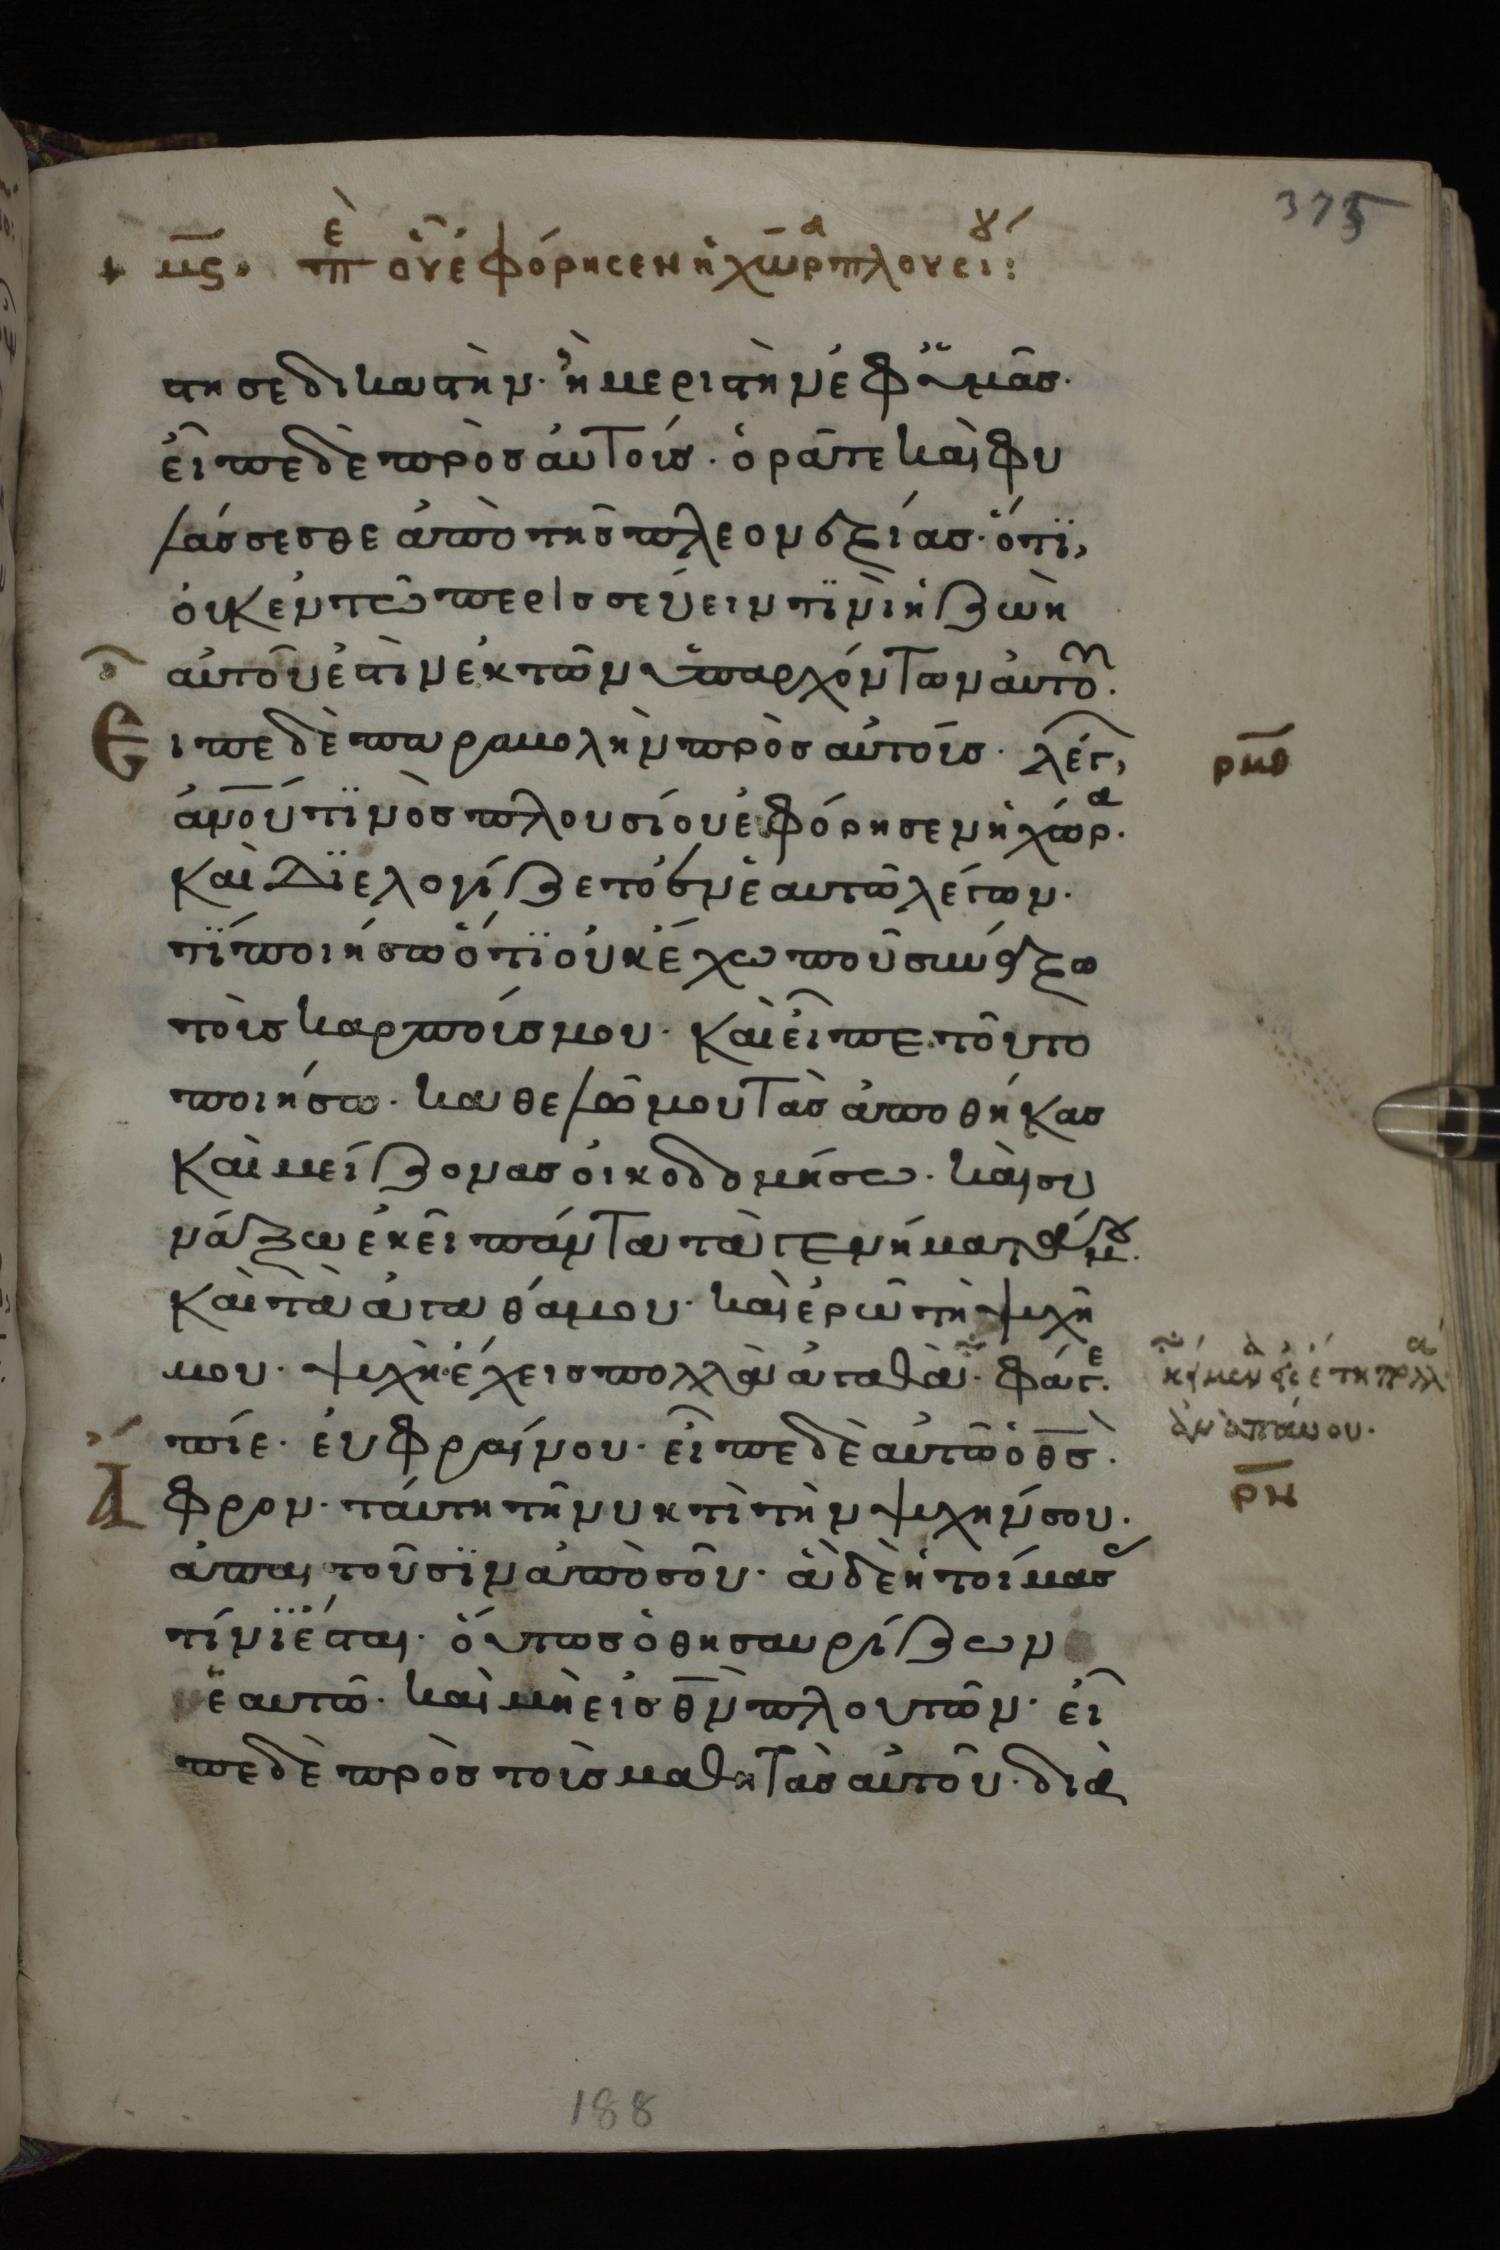 375
+ μς. πὲ οὗ ἐφόρησεν ἡ χώρα πλουσι:
τησε δικαστὴν· ἢ μεριστὴν ἐφ ὑμᾶσ·
εἶπε δὲ πρὸσ αὐτούσ· ὁρᾶτε καὶ φυ
λάσσεσθε ἀπὸ τησ πλεονεξίασ· ὅτϊ,
οὐκ ἐν τῶ περισσεύειν τϊνὶ ἡ ζωὴ
αὐτοῦ ἐστὶν ἐκ τῶν ὑπαρχόντων αὐτοῦ·
Ειπε δὲ παραβολὴν πρὸσ αὐτούσ· λέγ,
ρμθ
ἀνοῦ τϊνὸσ πλουσίου ἐφόρησεν ἡ χώρα·
καὶ Δϊελογίζετο ἐν ἑαυτῶ λέγων·
τί ποιήσω ὅτϊ οὐκ ἔχω ποῦ συνάξω
τοὺσ καρπούσ μου· καὶ εἶπε· τοῦτο
ποιήσω· καθελῶ μου τὰσ ἀποθήκασ
καὶ μείζονασ οἰκοδομήσω· καὶ συ
νάξω ἐκεῖ πάντα τὰ γενήματά μου·
καὶ τὰ ἀγαθά μου· καὶ ἐρῶ τῆ ψυχῆ
μου· ψυχὴ· ἔχεισ πολλὰ ἀγαθὰ· φάγε·
κείμενα εἰς ἔτη πολλά
ἀναπάυου·
πίε· εὐφραίνου· εἶπε δὲ αὐτῶ ὁ θσ·
Α φρον· ταύτη τῆ νυκτὶ τὴν ψυχήν σου·
ρν
ἀπαιτοῦσϊν ἀπὸ σοῦ· ἃ δὲ ἡτοίμασ
τίνϊ ἔσται· ὅυτωσ ὁ θησαυρίζων
ἑαυτῶ· καὶ μὴ εἰσ θν πλουτῶν· εἶ
πε δὲ πρὸσ τοὺσ μαθητὰσ αὐτοῦ· διὰ
188